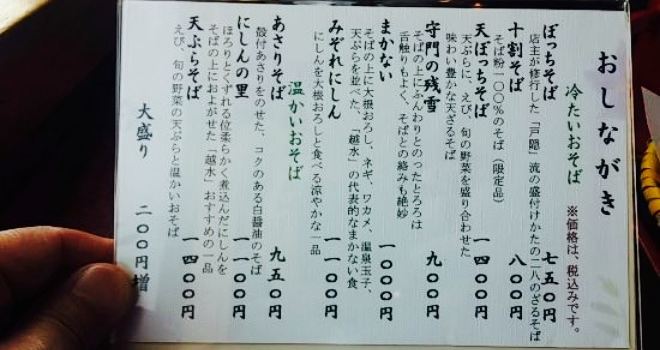 おしながき
※価格は、税込みです。
冷たいおそば
ぼっちそば 七五〇円
店主が修行した「戸隠」流の盛付けかたの二八のざるそば
十割そば 八〇〇円
そば粉一〇〇%のそば (限定品)
天ぼっちそば 一四〇〇円
天ぷらに、えび、旬の野菜を盛り合わせた
味わい豊かな天ざるそば
守門の残雪 九〇〇円
そばの上にふんわりとのったとろろは
舌触りもよく、そばとの絡みも絶妙
まかない 一〇〇〇円
そばの上に大根おろし、ネギ、ワカメ、温泉玉子、
天ぷらを並べた、「越水」の代表的なまかない食
みぞれにしん 一一〇〇円
にしんを大根おろしと食べる涼やかな一品
温かいおそば
あさりそば 九五〇円
殻付あさりをのせた、コクのある白醤油のそば
にしんの里 一一〇〇円
ほろりとくずれる位柔らかく煮込んだにしんを
そばの上におよがせた「越水」おすすめの一品
天ぷらそば 一四〇〇円
えび、旬の野菜の天ぷらと温かいおそば
大盛り 二〇〇円増